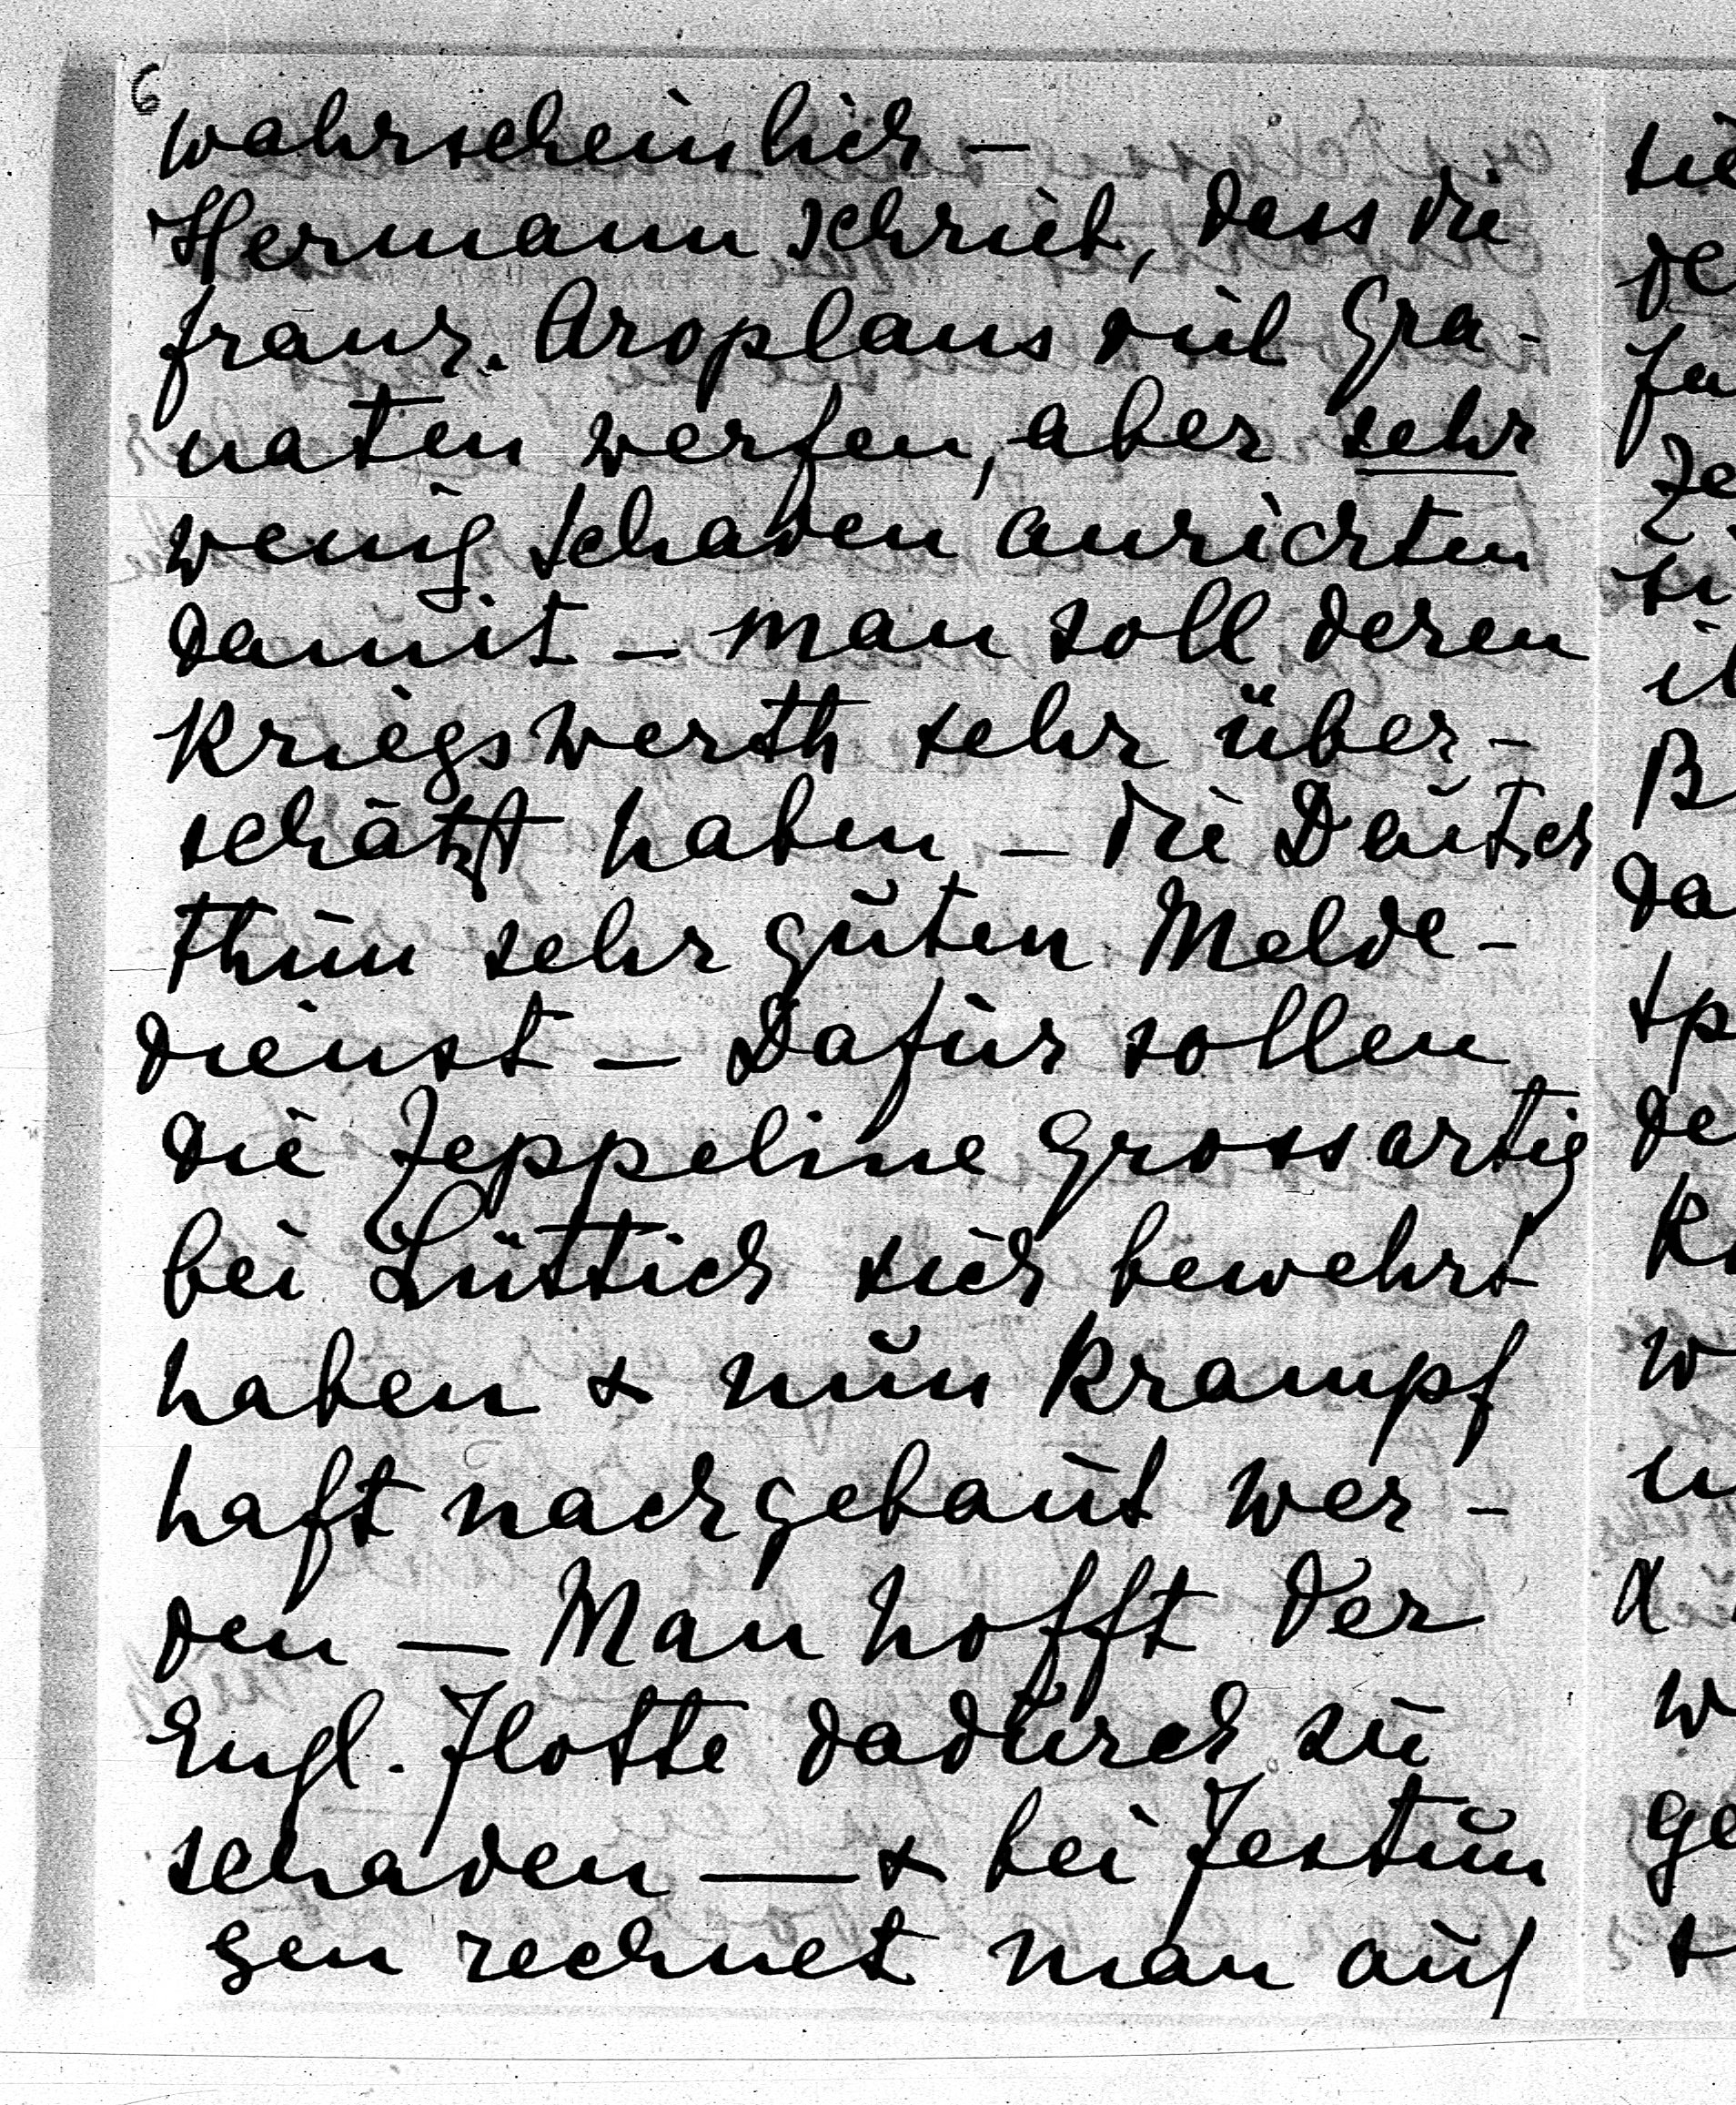 6
wahrscheinlich –
Hermann schrieb, dass die
franz. Aroplans viel Gra-
naten werfen, aber sehr
wenig Schaden anrichten
damit – man soll deren
Kriegswerth sehr über-
schätzt haben – die Deutsch
thun sehr guten Melde-
dienst – Dafür sollen
die Zeppeline Grossartig
bei Lüttich sich bewehrt
haben & nun Krampf
haft nachgebaut wer-
den – Man hofft der
Engl. Flotte dadurch zu
schaden — & bei Festun
gen rechnet man auf